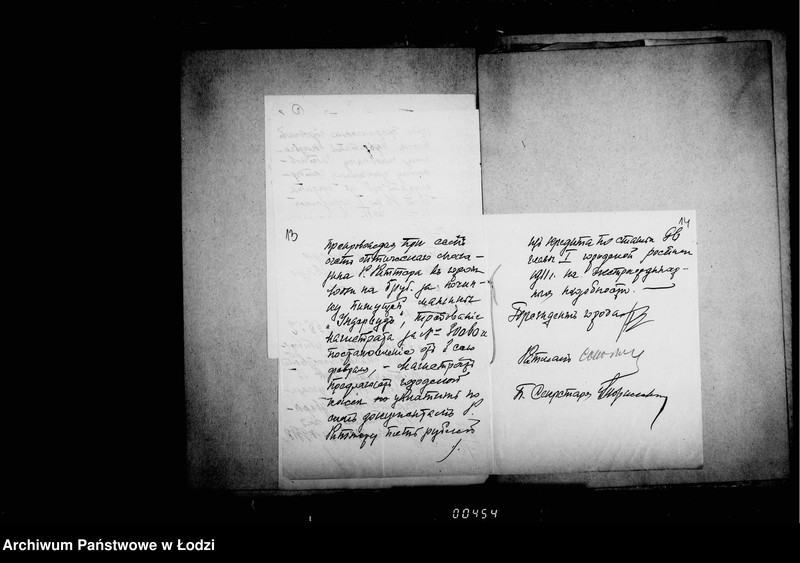 13
Препровождая при семъ
счетъ оптическаго мага-
зина Р. Риттера въ
на 5 руб. за почин-
ку пишущей машины
"Ундервудъ", требованіе
магистрата за №
постановленіе отъ 8 сего
февраля, - магистратъ
предлагаетъ городской
кассѣ уплатить по
симъ документамъ Р.
Риттеру пять рублей
14
изъ кредита по статьѣ
главы I городской росписи
на экстраординар-
ныя надобности.
Президентъ города
П. Секретаря
00454
Archiwum Państwowe w Łodzi